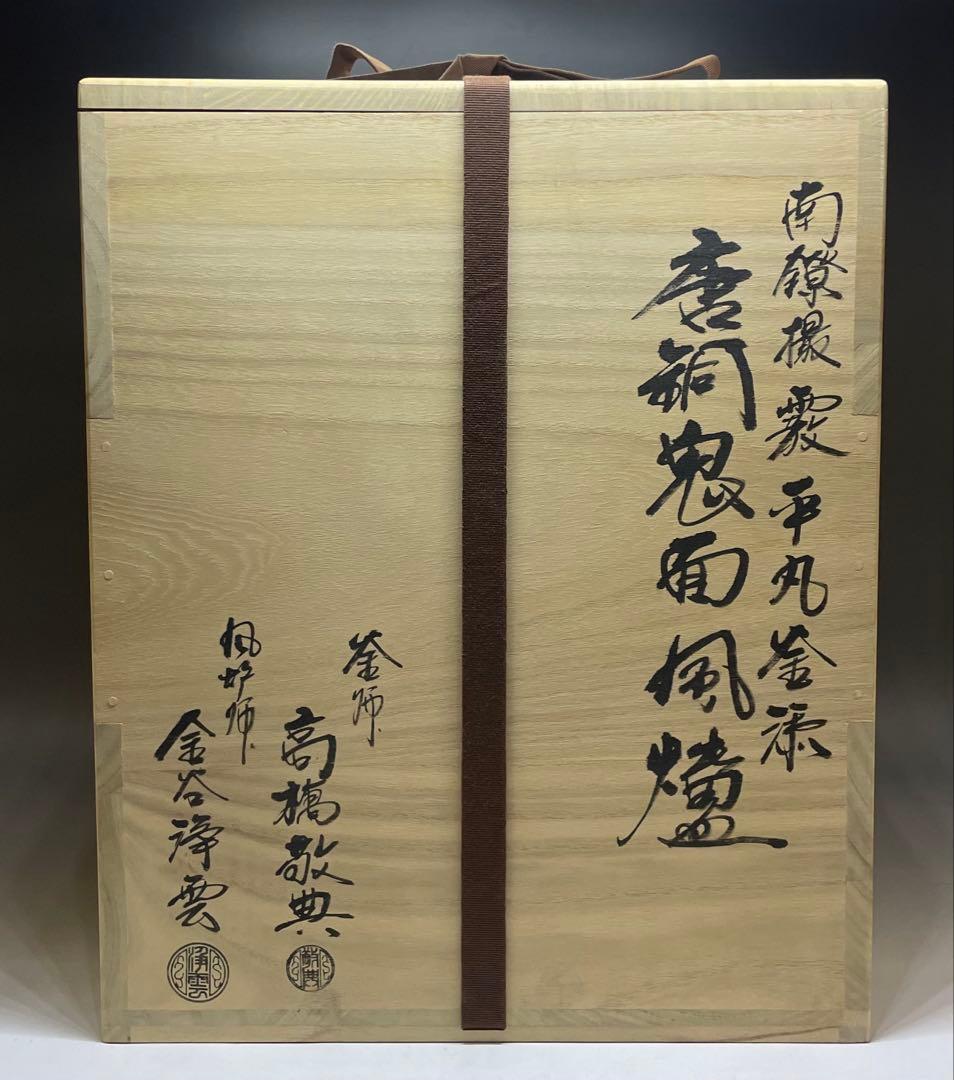 南鐐撮霰平丸釜添
唐銅鬼面風爐
釜師
高橋敬典
敬典
風炉師
金谷浄雲
浄雲